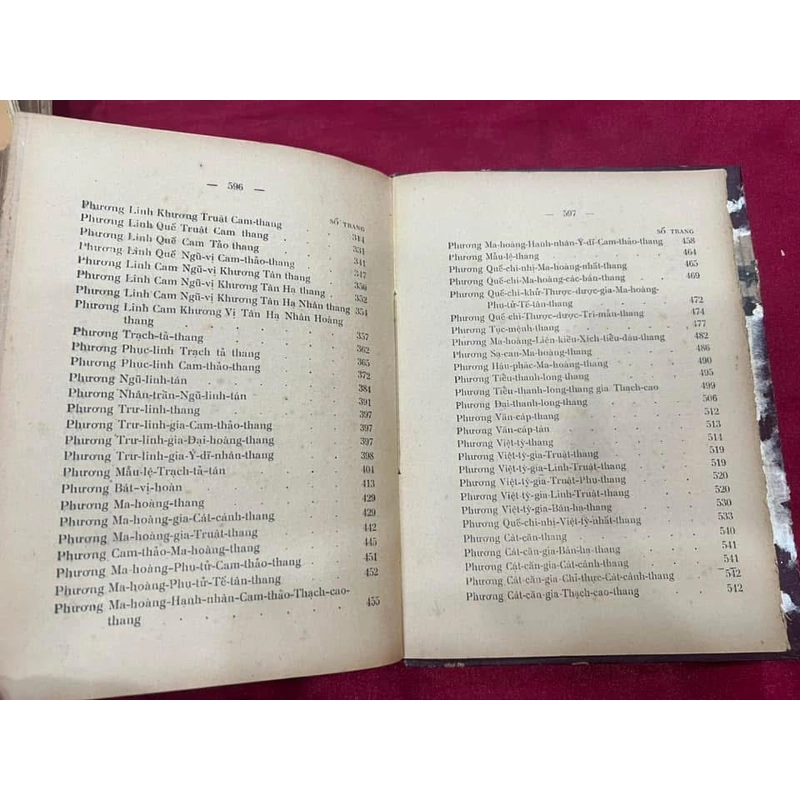 — 596 —
SỐ TRANG
Phương Linh Khương Truật Cam-thang
Phương Linh Quế Truật Cam thang . . 314
Phương Linh Quế Cam Tảo thang . . 331
Phương Linh Quế Ngũ-vị Cam-thảo-thang . 341
Phương Linh Cam Ngũ-vị Khương Tân thang . 347
Phương Linh Cam Ngũ-vị Khương Tân Hạ thang . 350
Phương Linh Cam Ngũ-vị Khương Tân Hạ Nhân thang . 352
Phương Linh Cam Khương Vị Tân Hạ Nhân Hoàng 354
thang
Phương Trạch-tả-thang 357
Phương Phục-linh Trạch tả thang 362
Phương Phục-linh Cam-thảo-thang 365
Phương Ngũ-linh-tán 372
Phương Nhân-trần-Ngũ-linh-tán 384
Phương Trư-linh-thang 391
Phương Trư-linh-gia-Cam-thảo-thang 397
Phương Trư-linh-gia-Đại-hoàng-thang 397
Phương Trư-linh-gia-Ý-dĩ-nhân-thang 397
Phương Mẫu-lệ-Trạch-tả-tán 398
Phương Bát-vị-hoàn 404
Phương Ma-hoàng-thang 413
Phương Ma-hoàng-gia-Cát-cánh-thang 429
Phương Ma-hoàng-gia-Truật-thang 429
Phương Cam-thảo-Ma-hoàng-thang 442
Phương Ma-hoàng-Phu-tử-Cam-thảo-thang 445
Phương Ma-hoàng-Phu-tử-Tế-tân-thang 451
Phương Ma-hoàng-Hạnh-nhân-Cam-thảo-Thạch-cao- 452
thang 455
— 597 —
SỐ TRANG
Phương Ma-hoàng-Hạnh-nhân-Ý-dĩ-Cam-thảo-thang 458
Phương Mẫu-lệ-thang 464
Phương Quế-chi-nhị-Ma-hoàng-nhất-thang 465
Phương Quế-chi-Ma-hoàng-các-bán-thang 469
Phương Quế-chi-khử-Thược-dược-gia-Ma-hoàng-
Phu-tử-Tế-tân-thang 472
Phương Quế-chi-Thược-dược-Tri-mẫu-thang 474
Phương Tục-mệnh-thang 477
Phương Ma-hoàng-Liên-kiều-Xích-tiểu-đậu-thang 482
Phương Sạ-can-Ma-hoàng-thang 486
Phương Hậu-phác-Ma-hoàng-thang 490
Phương Tiểu-thanh-long-thang 495
Phương Tiểu-thanh-long-thang gia Thạch-cao 499
Phương Đại-thanh-long-thang 506
Phương Văn-cáp-thang 512
Phương Văn-cáp-tán 513
Phương Việt-tỳ-thang 514
Phương Việt-tỳ-gia-Truật-thang 519
Phương Việt-tỳ-gia-Linh-Truật-thang 519
Phương Việt-tỳ-gia-Truật-Phu-thang 520
Phương Việt-tỳ-gia-Linh-Truật-thang 520
Phương Việt-tỳ-gia-Bán-hạ-thang 530
Phương Quế-chi-nhị-Việt-tỳ-nhất-thang 533
Phương Cát-căn-thang 540
Phương Cát-căn-gia-Bán-hạ-thang 541
Phương Cát-căn-gia-Cát-cánh-thang 541
Phương Cát-căn-gia-Chỉ-thực-Cát-cánh-thang 542
Phương Cát-căn-gia-Thạch-cao-thang 542